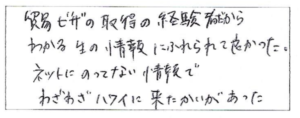 貿易ビザの取得の経験者だから
わかる生の情報にふれられて良かった。
ネットにのってない情報で
わざわざハワイに来たかいがあった